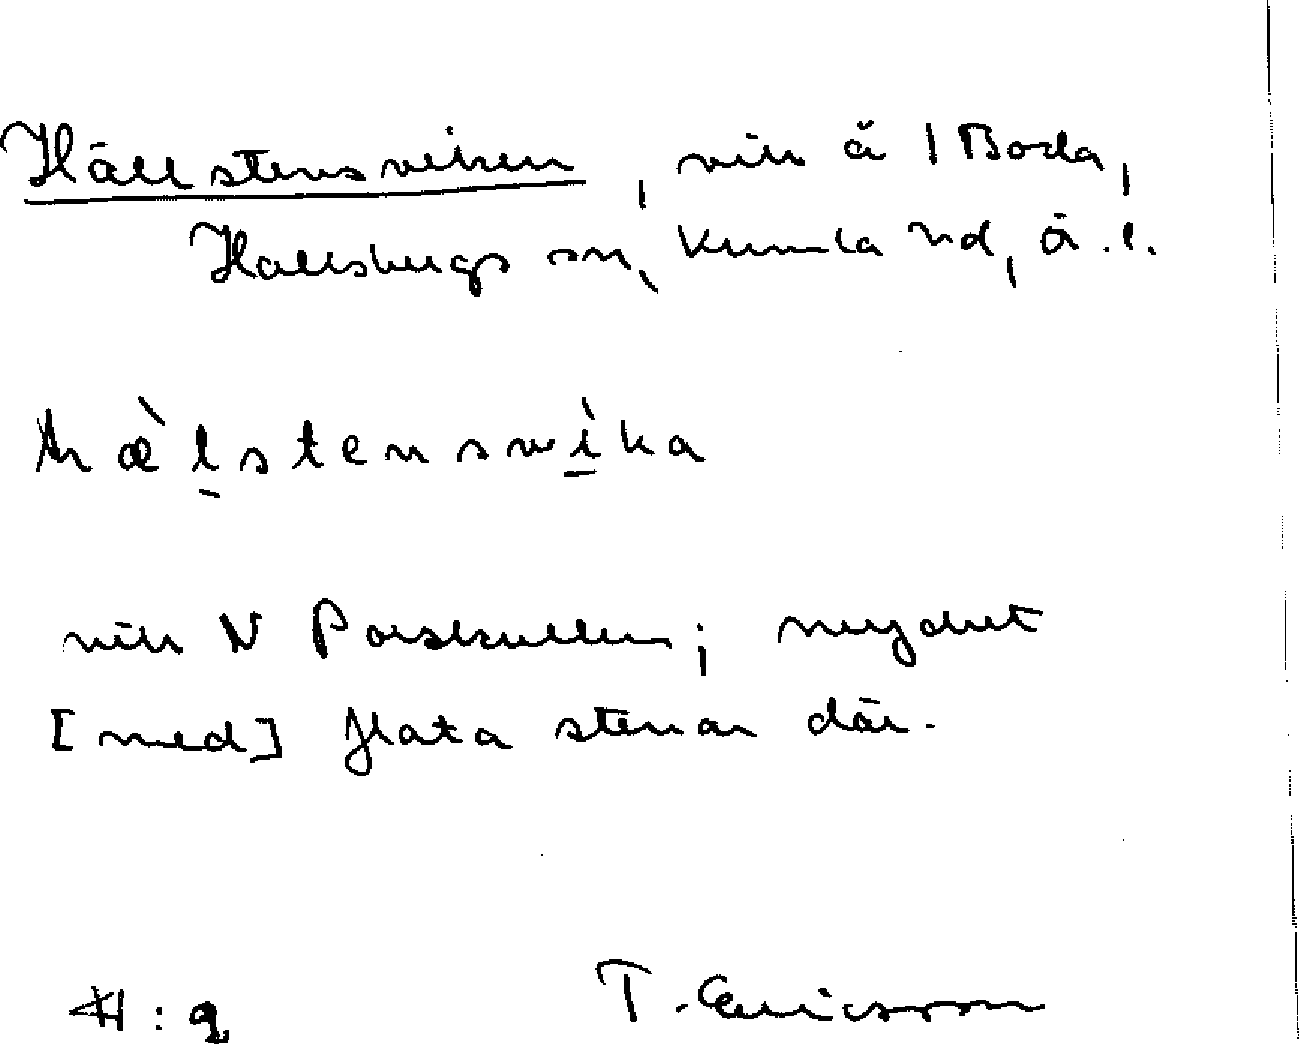 Hällstensviken, vik å 1 Boda,
Hallsbergs sn, Kumla hd, ö.l.
hæ̀l̠stensvì̠ka
vik N Porskullen; mycket
[med] flata stenar där.
T. Ericsson